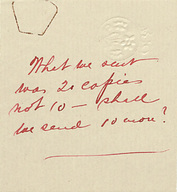 What we sent
was 20 copies
not 10 — shall
we send 10 more?